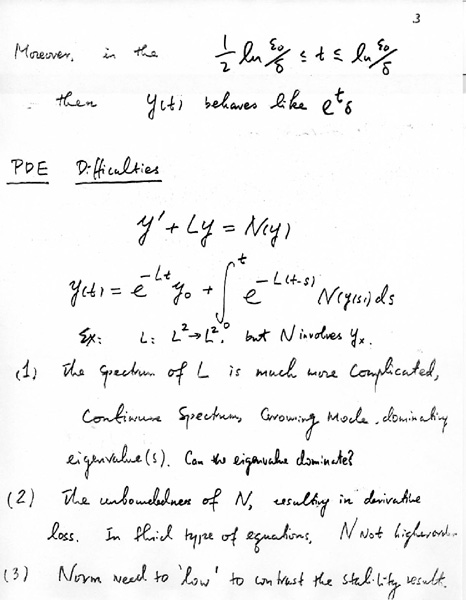 3
Moreover, in the 1/2 ln ε₀/δ ≤ t ≤ ln ε₀/δ
then y(t) behaves like e^t δ
PDE Difficulties
y' + Ly = N(y)
y(t) = e^{-Lt} y₀ + ∫₀^t e^{-L(t-s)} N(y(s)) ds
Ex: L: L² → L². but N involves yₓ.
(1) The spectrum of L is much more complicated,
Continuous Spectrum, Growing Mode, dominating
eigenvalue(s). Can the eigenvalue dominate?
(2) The unboundedness of N, resulting in derivative
loss. In fluid type of equations, N Not higher
(3) Norm need to 'low' to contrast the stability result.